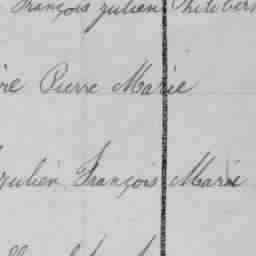 François julien Philibert
Pierre Marie
julien François Marie